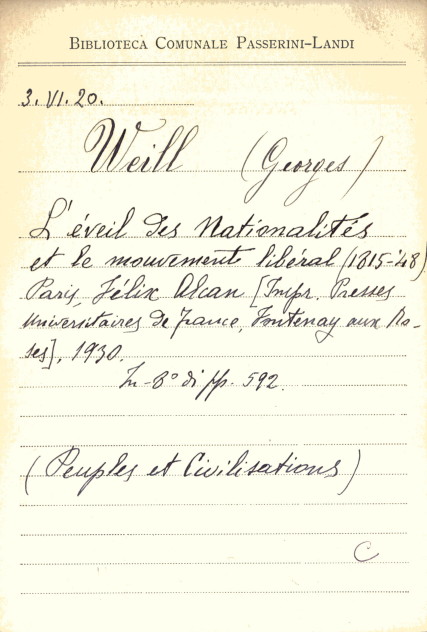 BIBLIOTECA COMUNALE PASSERINI-LANDI
3. VI. 20.
Weill (Georges)
L'éveil des Nationalités
et le mouvement libéral (1815-'48)
Paris, Félix Alcan [Impr. Presses
Universitaires de France, Fontenay aux Ro-
ses], 1930.
In-8° di pp. 592.
(Peuples et Civilisations)
C